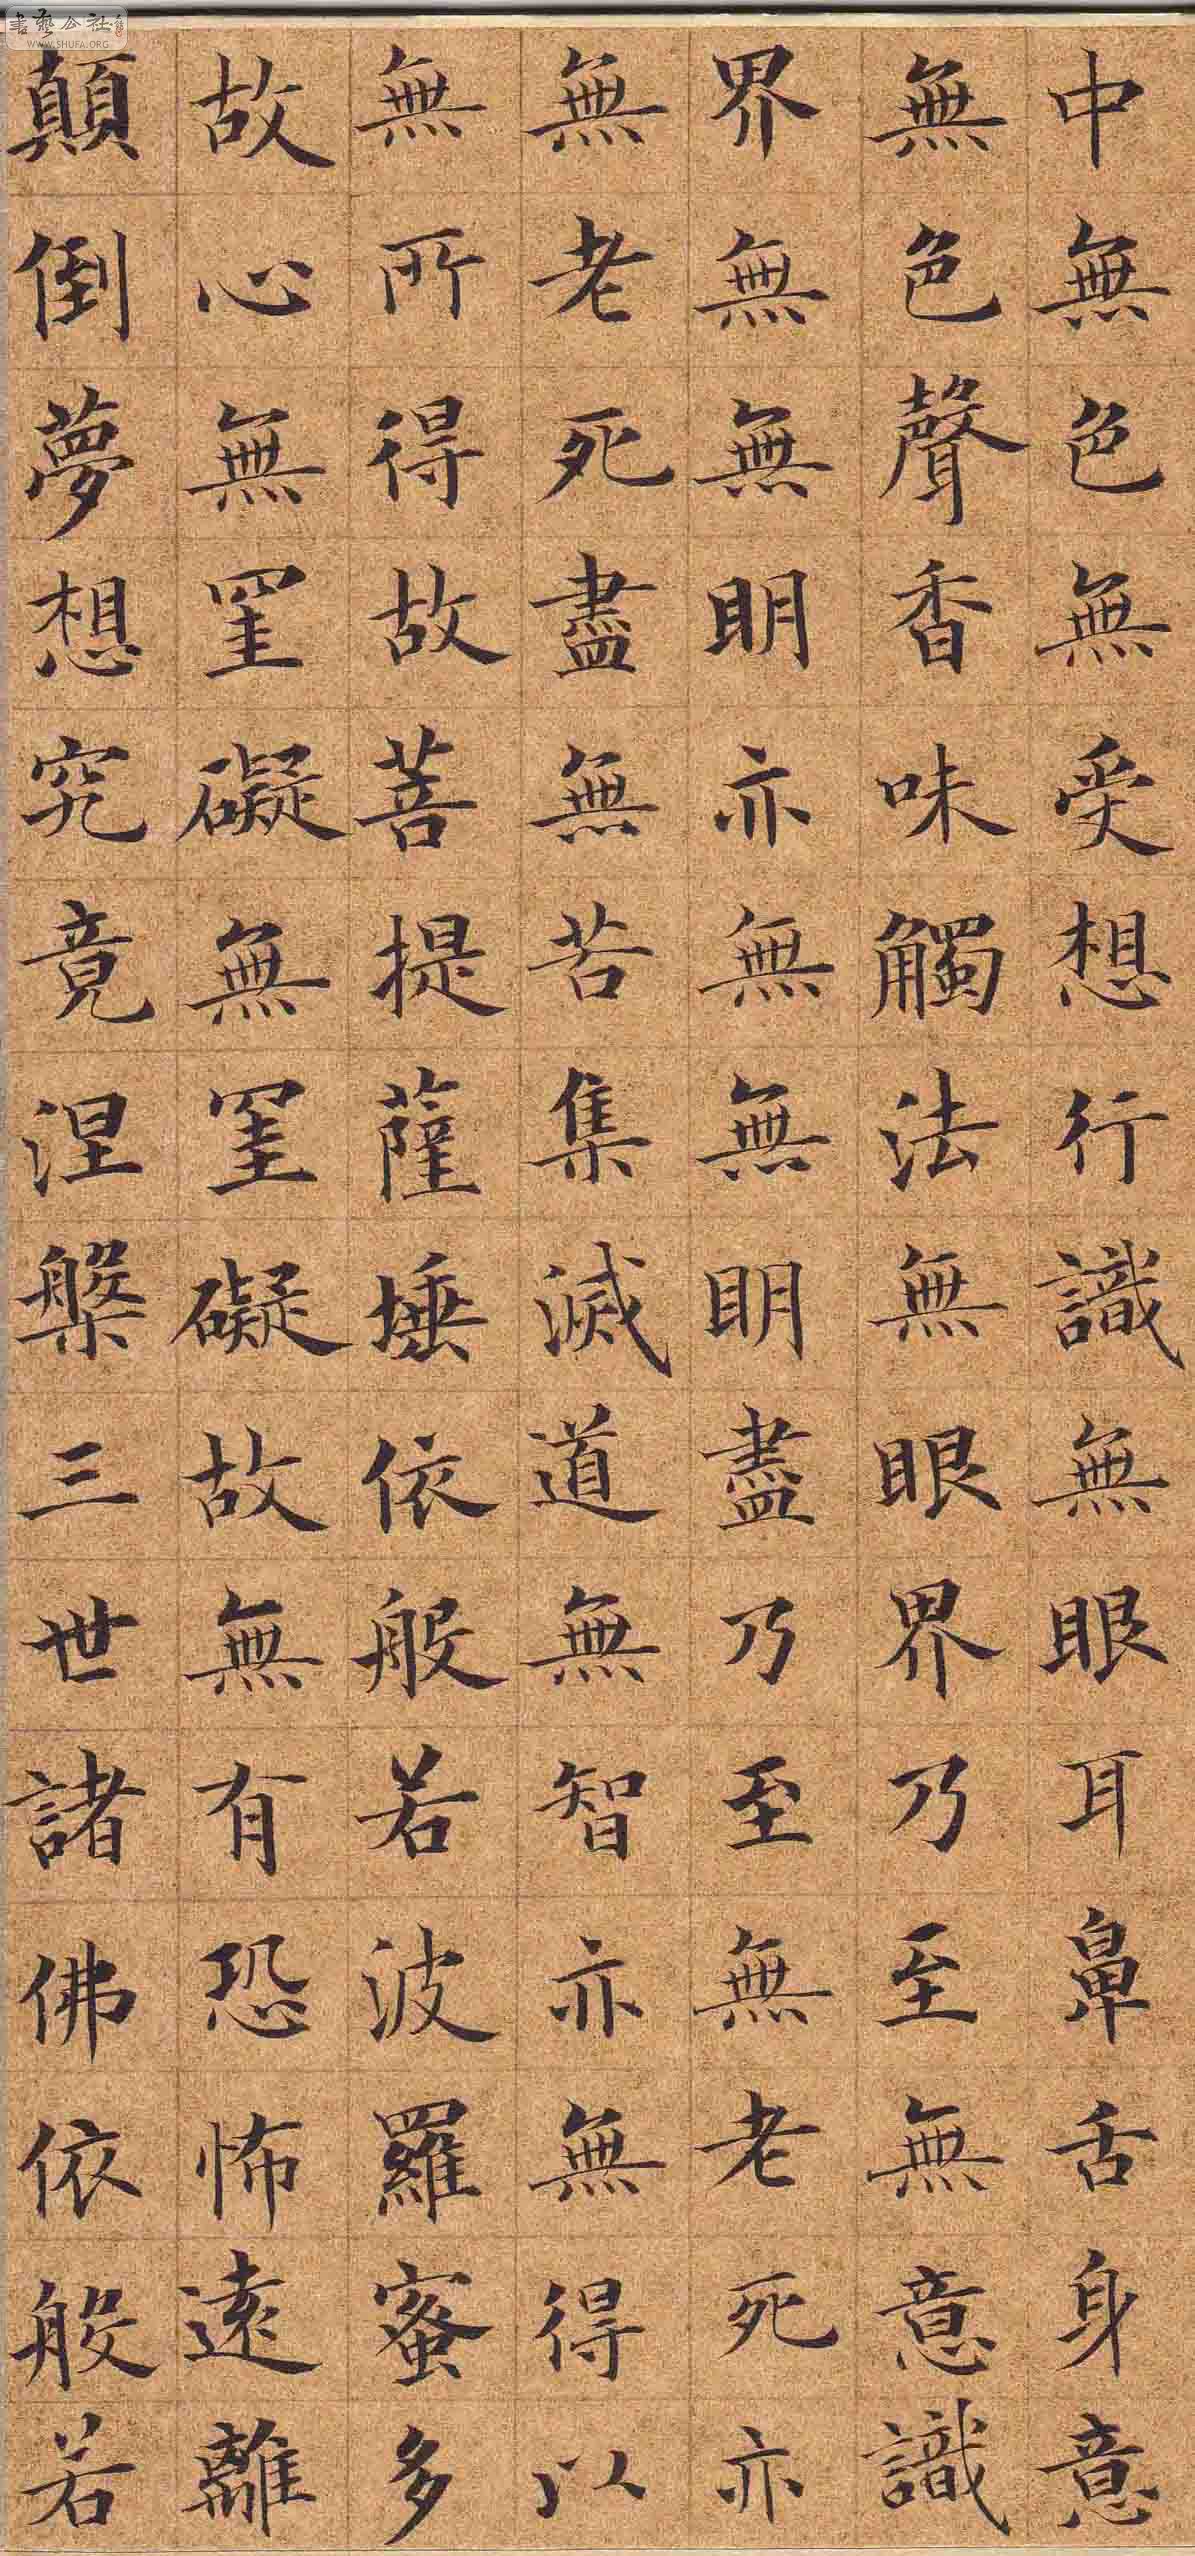 中無色無受想行識無眼耳鼻舌身意
無色聲香味觸法無眼界乃至無意識
界無無明亦無無明盡乃至無老死亦
無老死盡無苦集滅道無智亦無得以
無所得故菩提薩埵依般若波羅蜜多
故心無罣礙無罣礙故無有恐怖遠離
顛倒夢想究竟涅槃三世諸佛依般若
書藝公社
WWW.SHUFA.ORG